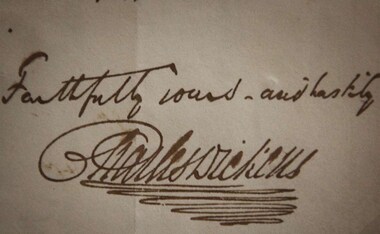 Faithfully yours - and hastily
Charles Dickens